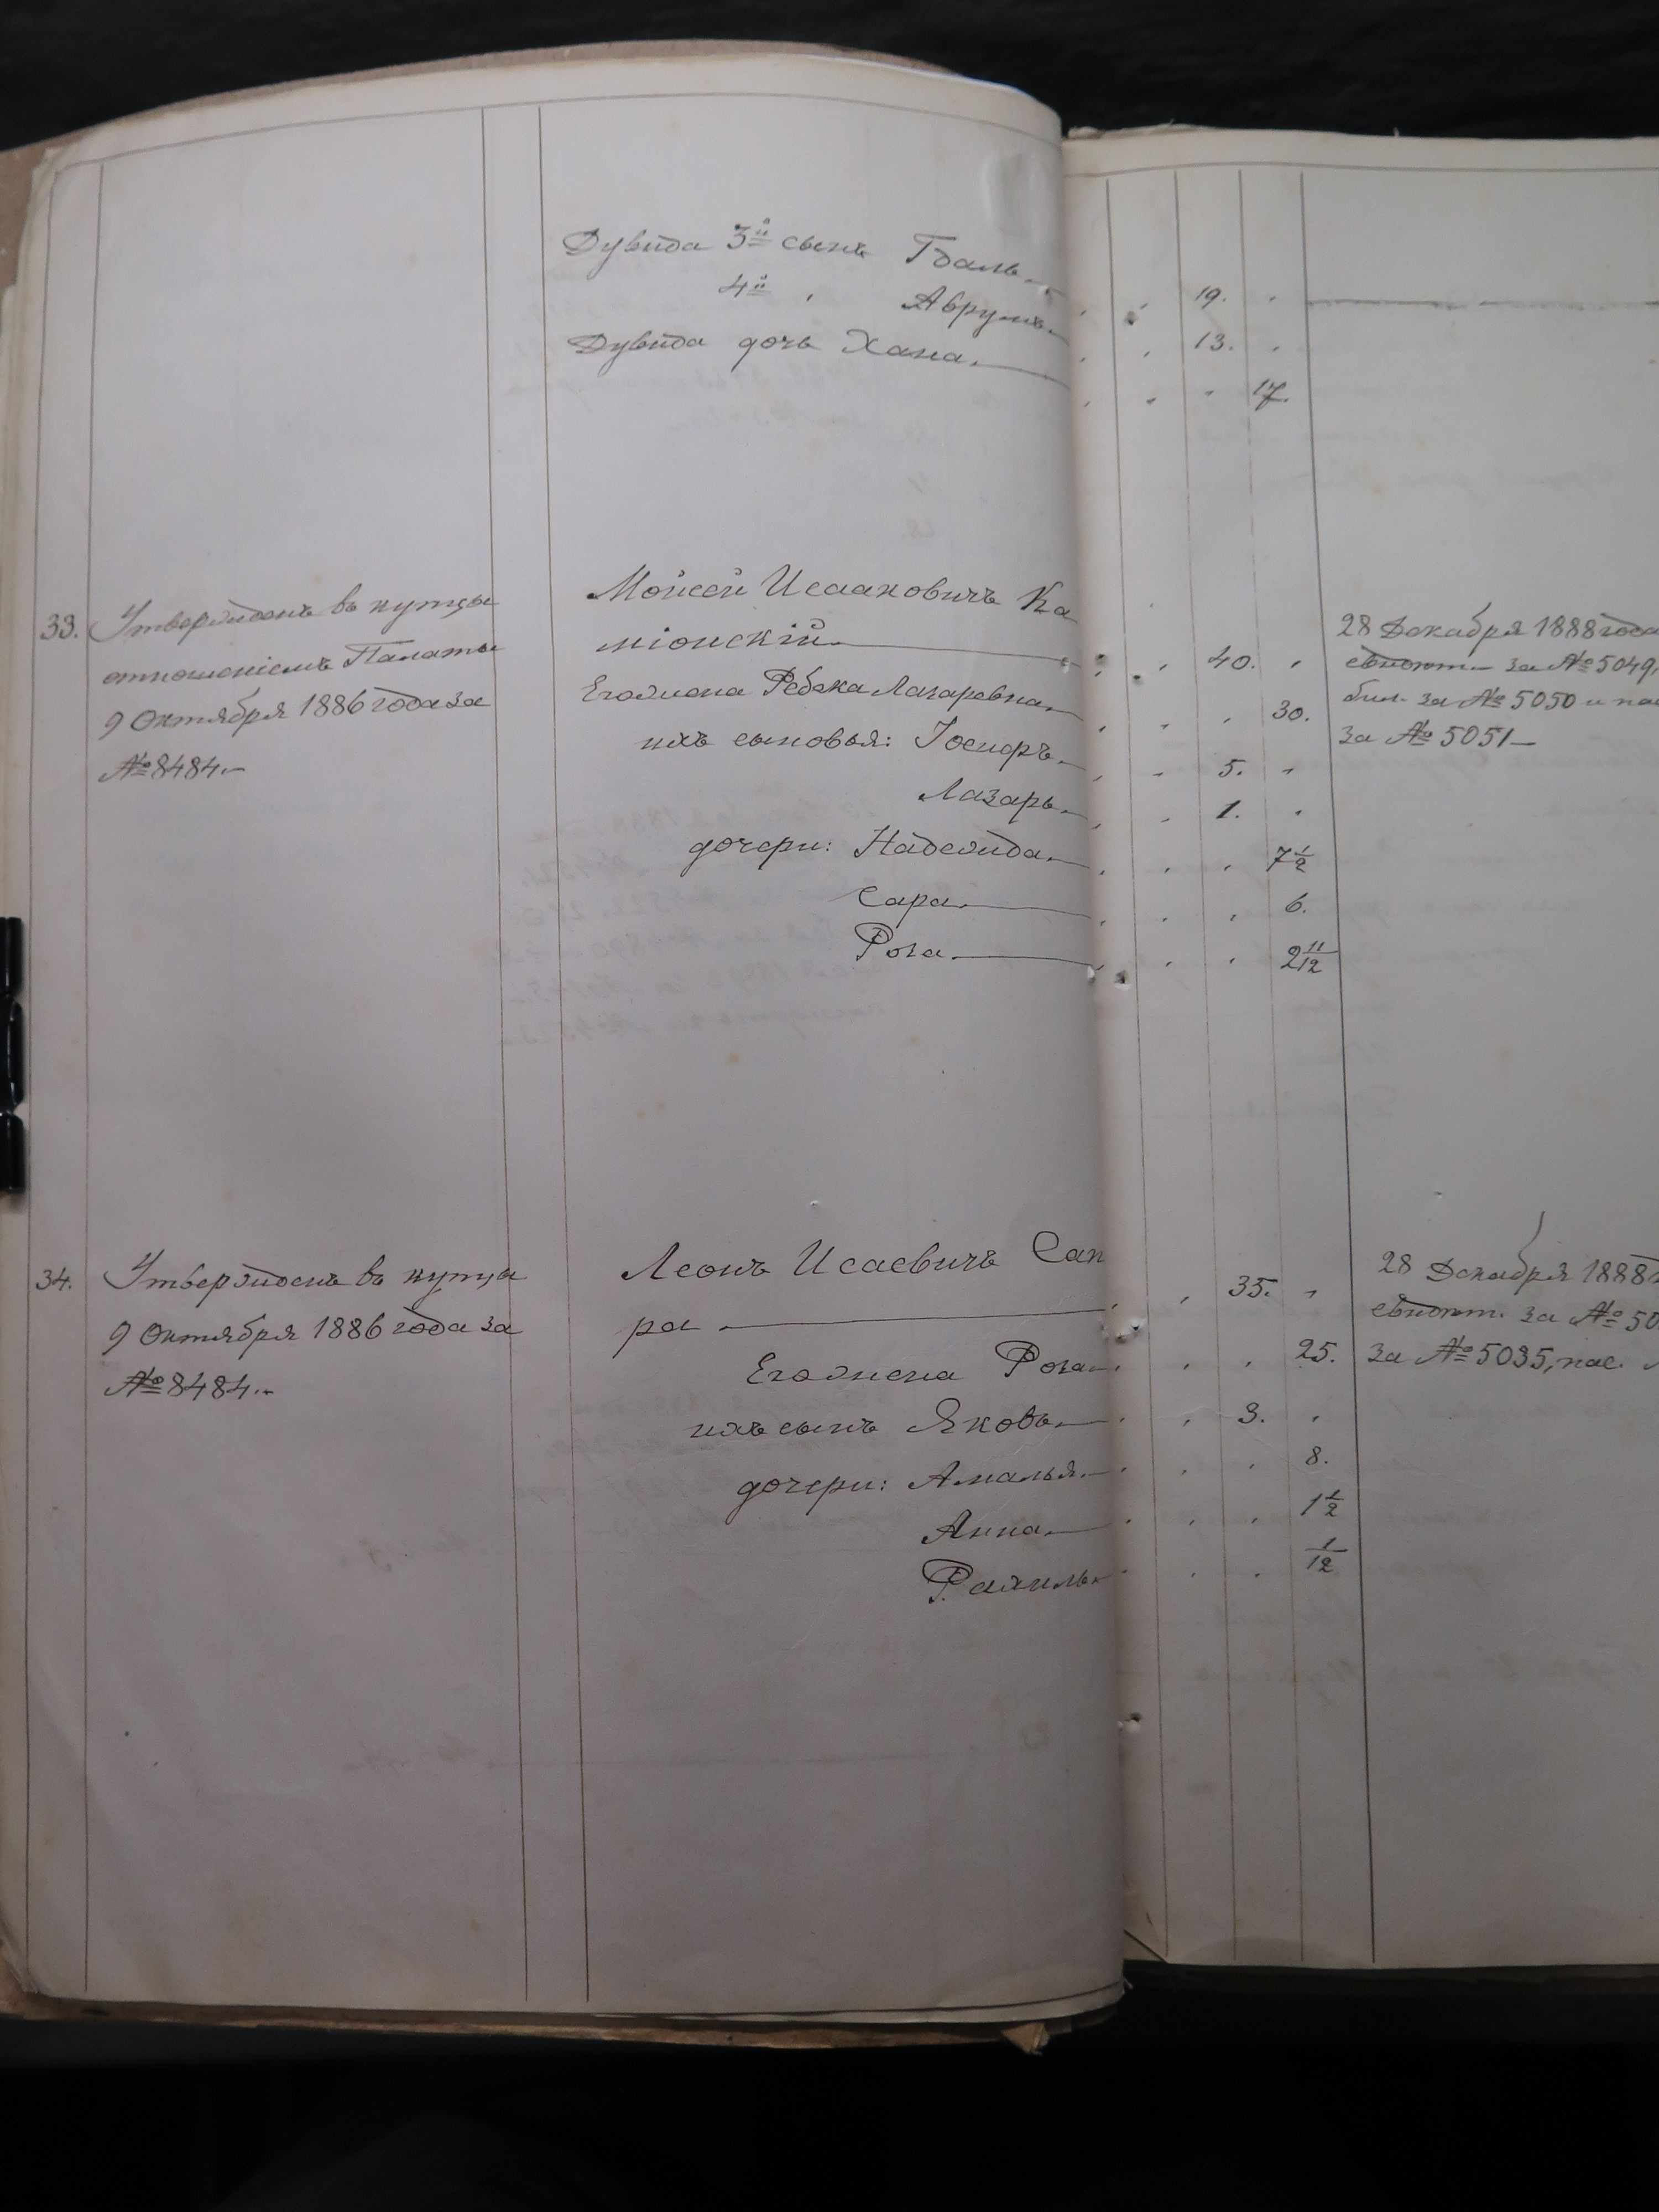 Дувида 3й сынъ Гдаль.
4й " Аврумъ.
19.
Дувида дочь Хана.
13.
17.
33. Утвержденъ въ купцы
отношеніемъ Палаты
9 Октября 1886 года за
№ 8484.–
Мойсей Исааковичъ Ка
міонскій
40.
Его жена Ребека Лазаревна.
30.
ихъ сыновья: Іосифъ.
5.
Лазарь.
1.
дочери: Надежда.
7 1/2
Сара.
6.
Роза.
2 11/12
28 Декабря 1888 года
свидѣт. за № 5049,
бил. за № 5050 и пас
за № 5051–
34. Утвержденъ въ купцы
9 Октября 1886 года за
№ 8484.–
Леонъ Исаевичъ Сап
ра
35.
Его жена Роза.
25.
ихъ сынъ Яковъ.
3.
дочери: Амалья.
8.
Анна.
1 1/2
Рахиль.
1/12
28 Декабря 1888 г
свидѣт. за № 50
за № 5035, пас.